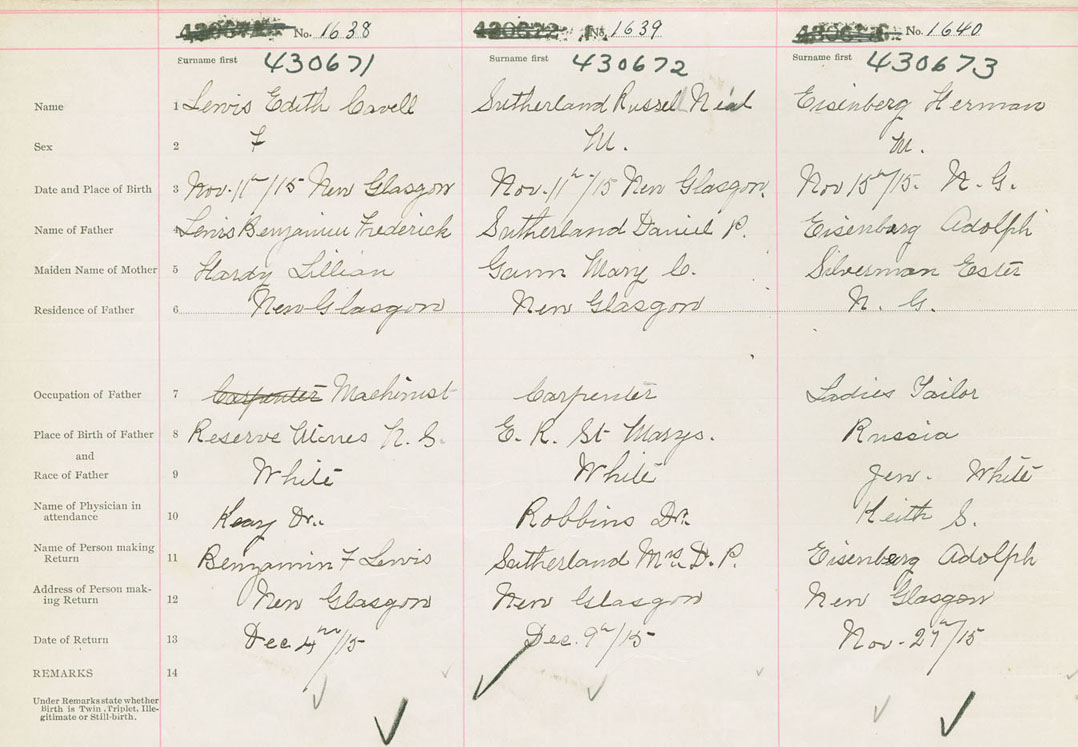 No. 1638 No. 1639 No. 1640
Surname first 430671 Surname first 430672 Surname first 430673
Name 1 Lewis Edith Cavell Sutherland Russel Neal Eisenberg Herman
Sex 2 F M. M.
Date and Place of Birth 3 Nov. 11th/15 New Glasgow Nov. 11th/15 New Glasgow. Nov 15th/15. N. G.
Name of Father 4 Lewis Benjamin Frederick Sutherland Daniel P. Eisenberg Adolph
Maiden Name of Mother 5 Hardy Lillian Gunn Mary C. Silverman Ester
Residence of Father 6 New Glasgow New Glasgow N. G.
Occupation of Father 7 Carpenter Machinist Carpenter Ladies Tailor
Place of Birth of Father 8 Reserve Mines N. S. E. R. St Marys. Russia
and
Race of Father 9 White White Jew. White
Name of Physician in
attendance 10 Dr. Robbins Dr. Keith S.
Name of Person making
Return 11 Benjamin F Lewis Sutherland Mrs D. P. Eisenberg Adolph
Address of Person mak-
ing Return 12 New Glasgow New Glasgow New Glasgow
Date of Return 13 Dec. 4th/15 Dec. 9th/15 Nov. 27th/15
REMARKS 14
Under Remarks state whether
Birth is Twin, Triplet, Ille-
gitimate or Still-birth.